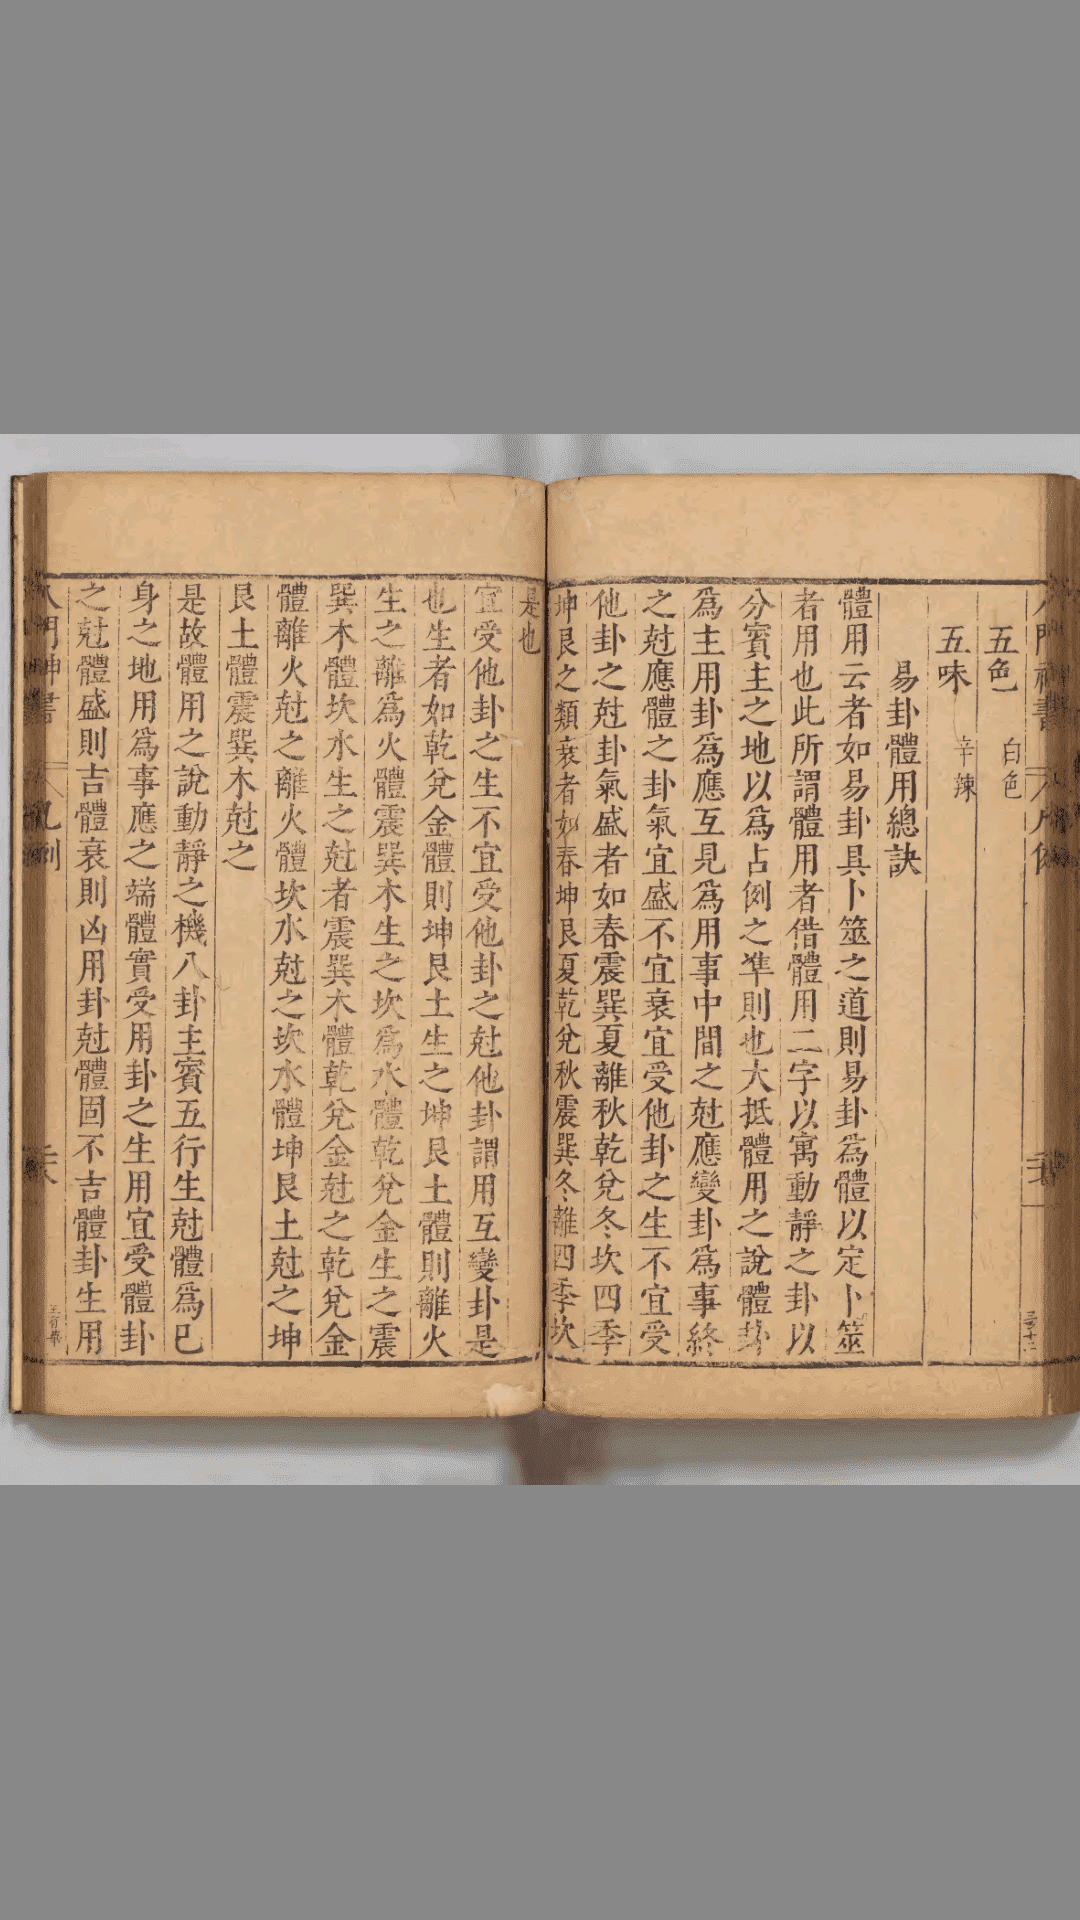 五色 白色
五味 辛辣
易卦體用總訣
體用云者如易卦具卜筮之道則易卦為體以定卜筮
者用也此所謂體用者借體用二字以寓動靜之卦以
分賓主之地以為占例之準則也大抵體用之說體卦
為主用卦為應互見為用事中間之尅應變卦為事終
之尅應體之卦氣宜盛不宜衰宜受他卦之生不宜受
他卦之尅卦氣盛者如春震巽夏離秋乾兌冬坎四季
坤艮之類衰者如春坤艮夏乾兌秋震巽冬離四季坎
是也
宜受他卦之生不宜受他卦之尅他卦謂用互變卦是
也生者如乾兌金體則坤艮土生之坤艮土體則離火
生之離為火體震巽木生之坎為水體乾兌金生之震
巽木體坎水生之尅者震巽木體乾兌金尅之乾兌金
體離火尅之離火體坎水尅之坎水體坤艮土尅之坤
艮土體震巽木尅之
是故體用之說動靜之機八卦主賓五行生尅體為已
身之地用為事應之端體實受用卦之生用宜受體卦
之尅體盛則吉體衰則凶用卦尅體固不吉體卦生用